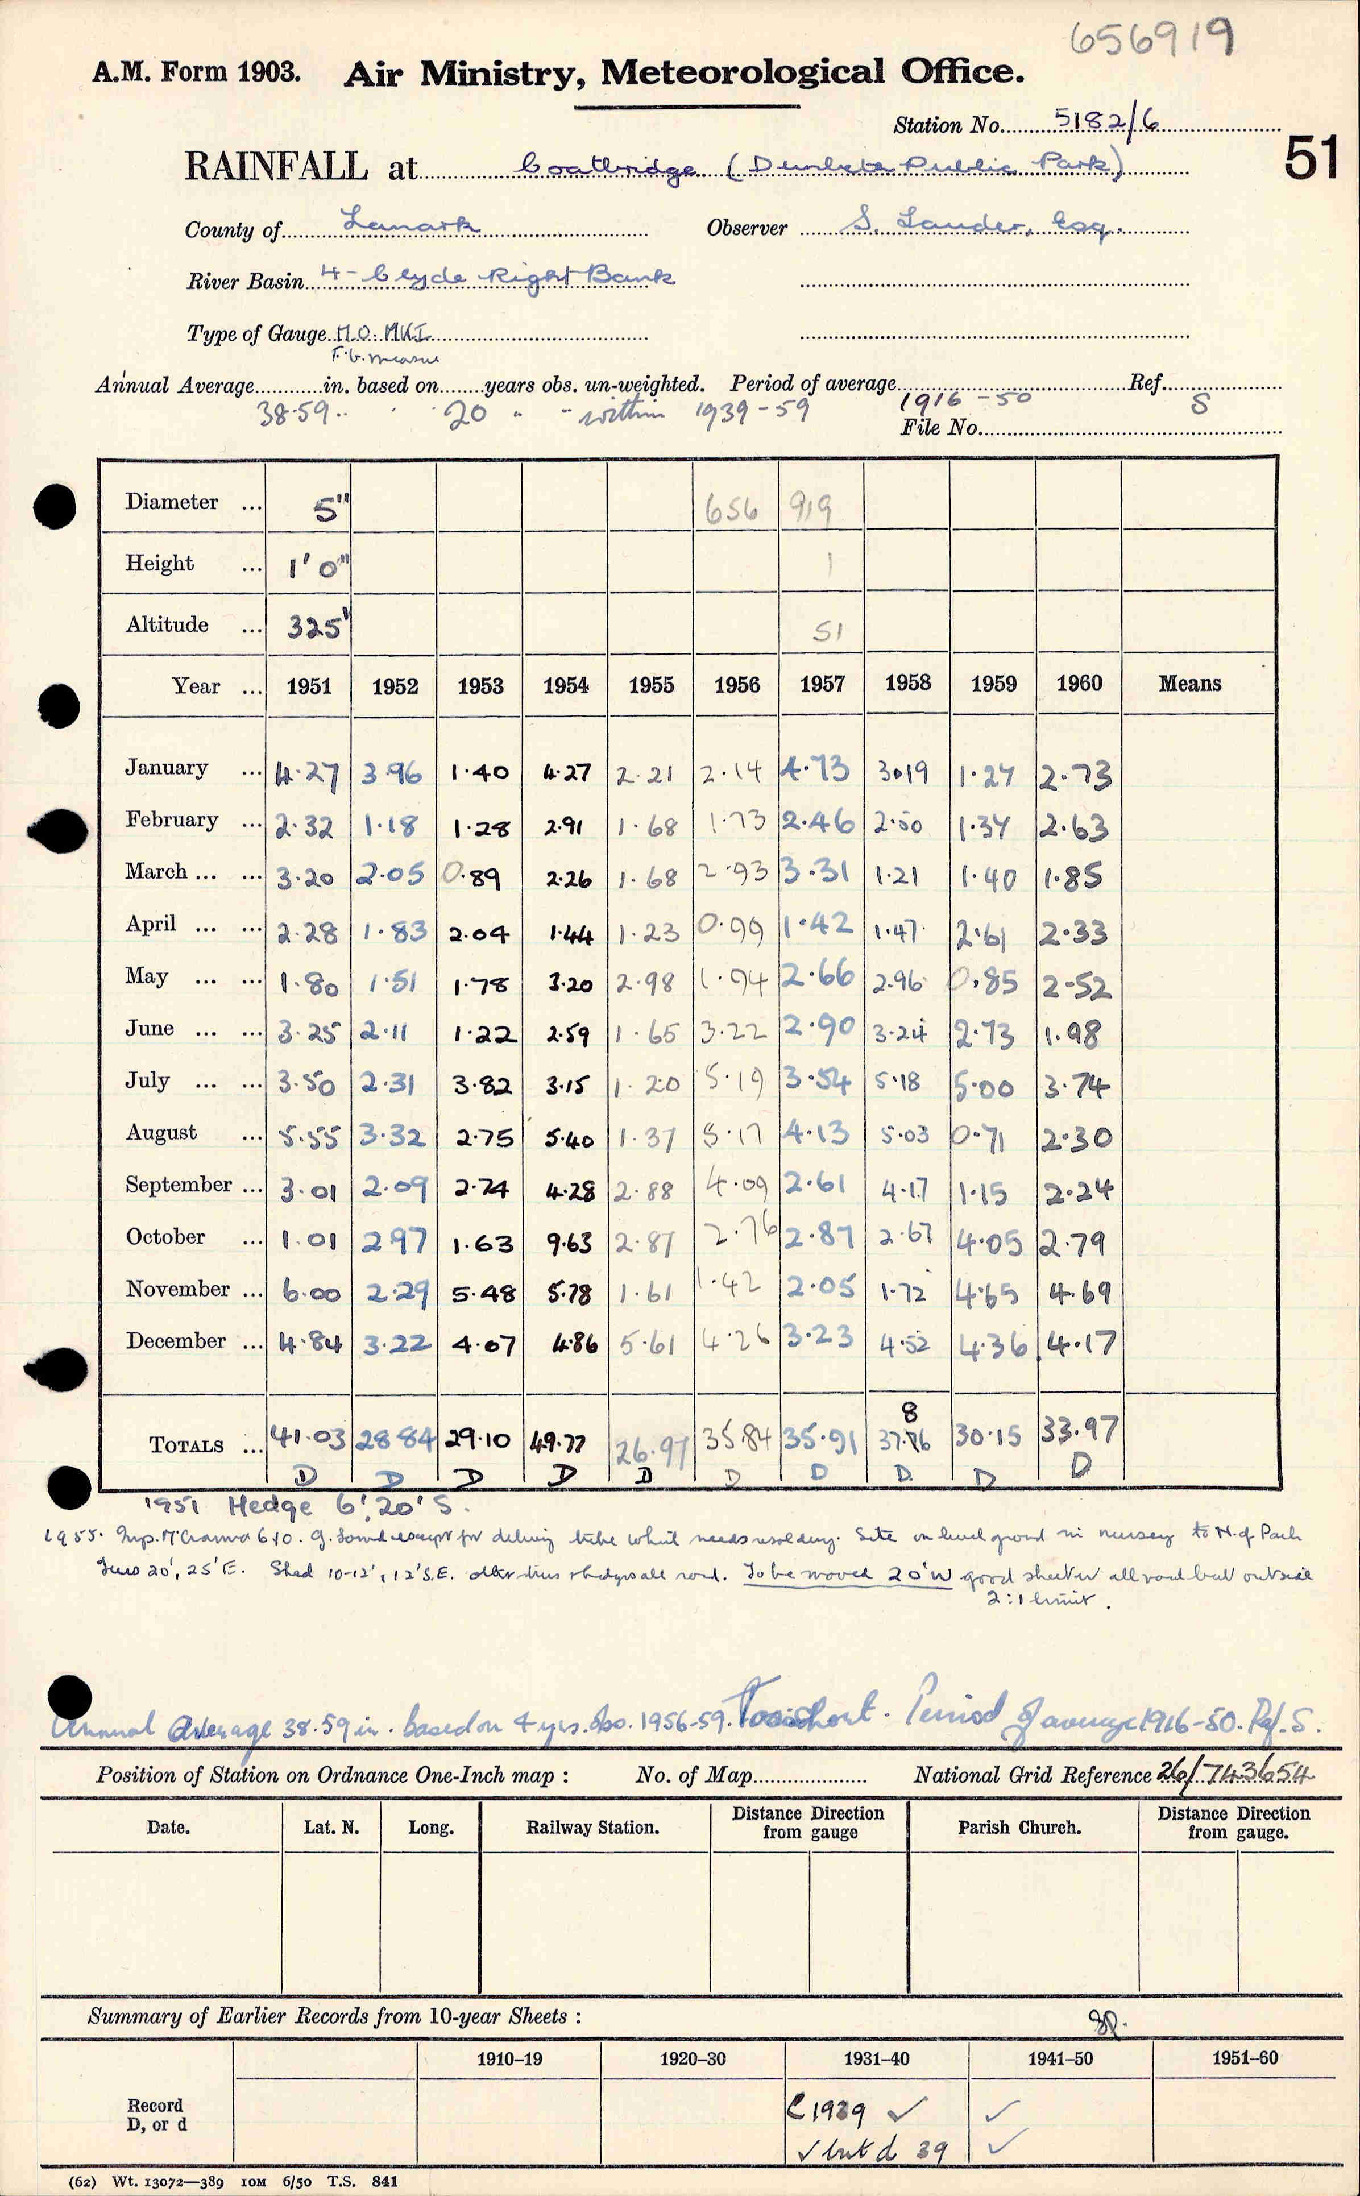 656919
A.M. Form 1903. Air Ministry, Meteorological Office.
Station No. 5182/6
51
RAINFALL at Coatbridge (Dunbeth Public Park)
County of Lanark Observer S. Lauder, Esq.
River Basin 4 - Clyde Right Bank
Type of Gauge M.O. MKI
F.G. measure
Annual Average in. based on years obs. un-weighted. Period of average 1916-50 Ref. S
38.59 20 " " within 1939-59
File No.
Diameter ... 5" 656 919
Height ... 1' 0" 1
Altitude ... 325' 51
Year ... 1951 1952 1953 1954 1955 1956 1957 1958 1959 1960 Means
January ... 4.27 3.96 1.40 4.27 2.21 2.14 4.73 3.19 1.27 2.73
February ... 2.32 1.18 1.28 2.91 1.68 1.73 2.46 2.50 1.37 2.63
March ... ... 3.20 2.05 0.89 2.26 1.68 2.93 3.31 1.21 1.40 1.85
April ... ... 2.28 1.83 2.04 1.44 1.23 0.99 1.42 1.47 2.61 2.33
May ... ... 1.80 1.51 1.78 3.20 2.98 1.94 2.66 2.96 0.85 2.52
June ... ... 3.25 2.11 1.22 2.59 1.65 3.22 2.90 3.24 2.73 1.98
July ... ... 3.50 2.31 3.82 3.15 1.20 5.19 3.54 5.18 5.00 3.74
August ... 5.55 3.32 2.75 5.40 1.37 5.17 4.13 5.03 0.71 2.30
September ... 3.01 2.09 2.74 4.28 2.88 4.09 2.61 4.17 1.15 2.24
October ... 1.01 2.97 1.63 9.63 2.87 2.76 2.87 2.67 4.05 2.79
November ... 6.00 2.29 5.48 5.78 1.61 1.42 2.05 1.72 4.65 4.69
December ... 4.84 3.22 4.07 4.86 5.61 4.26 3.23 4.52 4.36 4.17
8
TOTALS ... 41.03 28.84 29.10 49.77 26.97 35.84 35.91 37.76 30.15 33.97
D D D D D D D D D D
1951 Hedge 6', 20' S.
1955. Insp. 6/10. G. Sound except for delivery tube which needs resoldering. Site on level ground in nursery to N. of Park
Trees 20', 25' E. Shed 10-12', 12' S.E. other trees & hedges all round. To be moved 20' W good shelter all round but outside
2:1 limit.
Annual Average 38.59 in. based on 4 yrs. obs. 1956-59. Too short. Period of average 1916-50. Ref. S.
Position of Station on Ordnance One-Inch map : No. of Map National Grid Reference 26/743654
Date. Lat. N. Long. Railway Station. Distance from gauge Direction Parish Church. Distance Direction from gauge.
Summary of Earlier Records from 10-year Sheets :
1910–19 1920–30 1931–40 1941–50 1951–60
Record D, or d
C 1939 ✓ ✓
✓ but d 39 ✓
(62) Wt. 13072—389 10M 6/50 T.S. 841